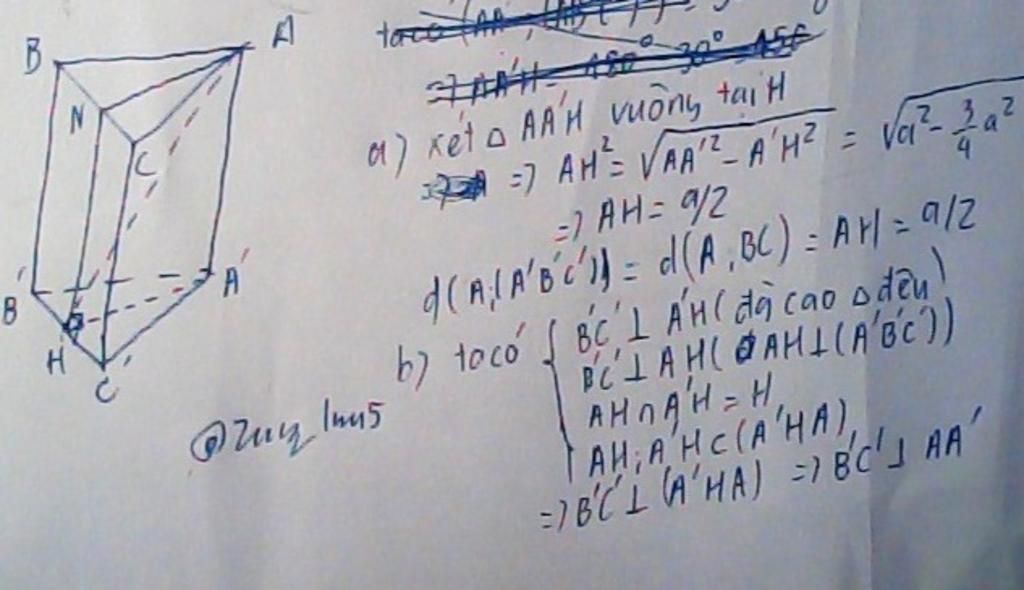 B
A
N
C
B'
A'
H
C'
@Zuyz_lmu5
a) xét Δ AA'H vuông tại H
=> AH² = √AA'² - A'H² = √a² - 3/4 a²
=> AH = a/2
d(A;(A'B'C')) = d(A,BC) = AH = a/2
b) ta có { B'C' ⊥ A'H (đg cao Δ đều)
B'C' ⊥ AH (AH ⊥ (A'B'C'))
AH ∩ A'H = H
AH; A'H ⊂ (A'HA)
=> B'C' ⊥ (A'HA) => B'C' ⊥ AA'